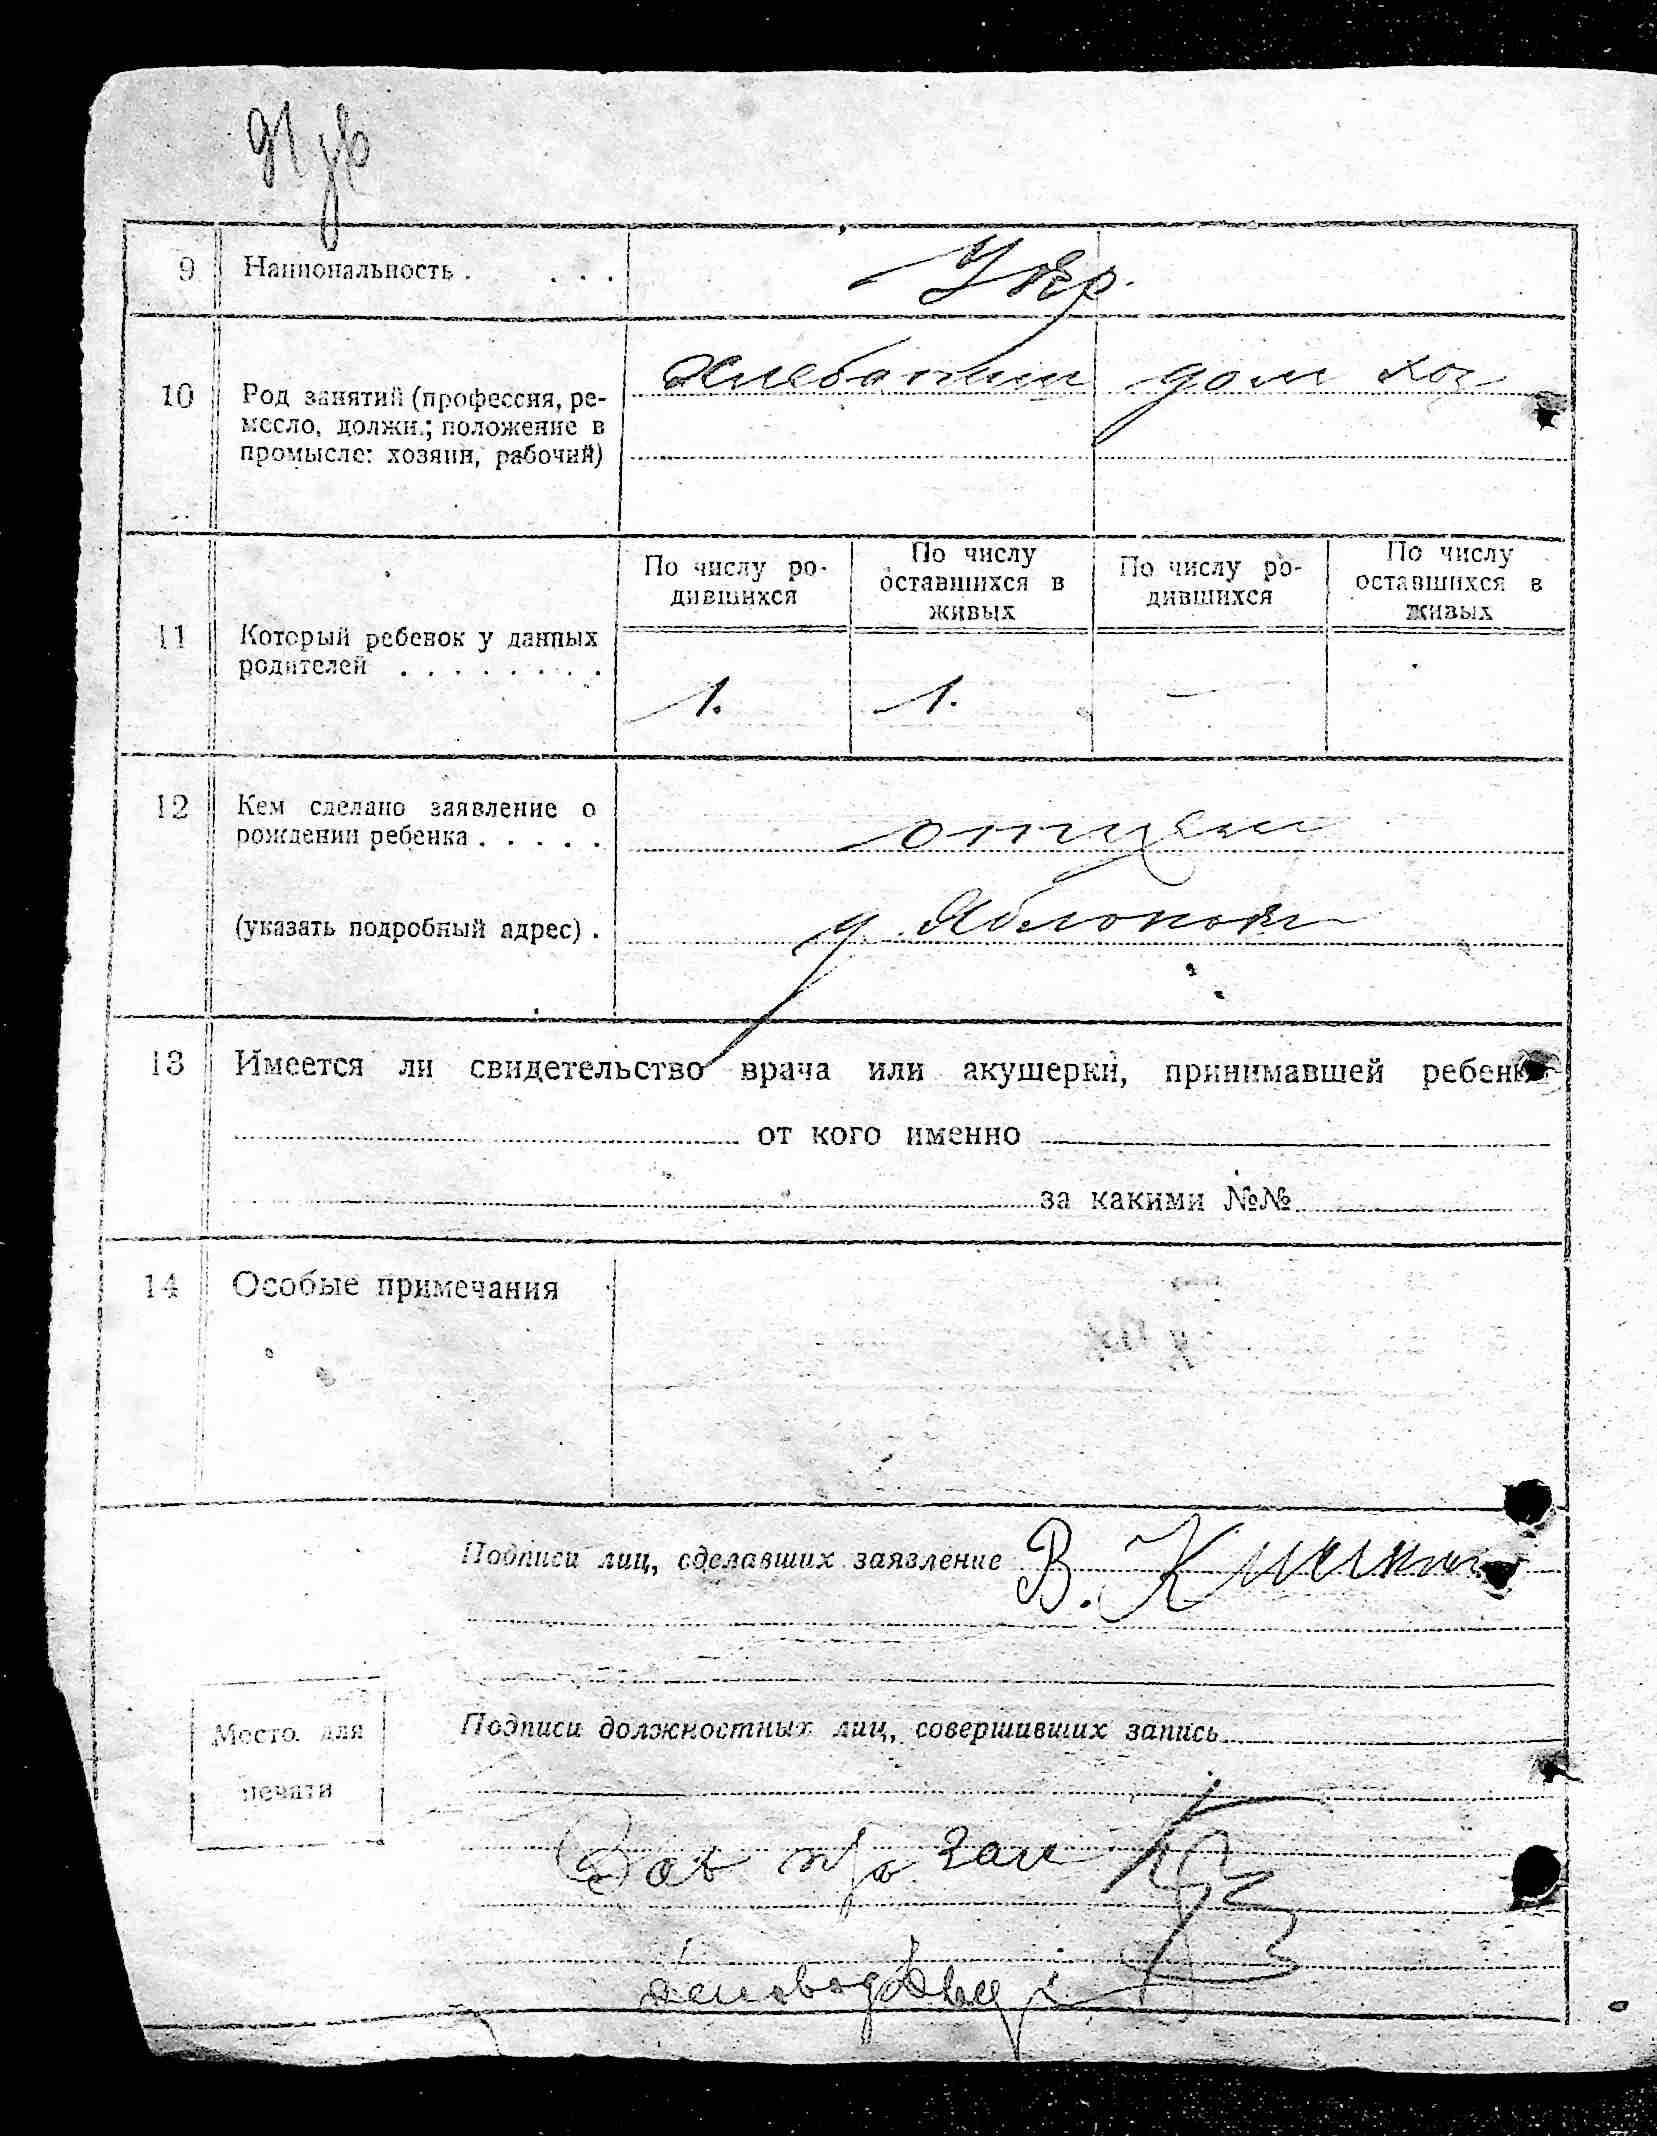 9 Национальность . . . . Укр.
10 Род занятий (профессия, ре-
месло, должн.; положение в
промысле: хозяин, рабочий)
Хлебопаш дом хоз
11 Который ребенок у данных
родителей . . . . . . . .
По числу ро-
дившихся
По числу
оставшихся в
живых
По числу ро-
дившихся
По числу
оставшихся в
живых
1. 1. —
12 Кем сделано заявление о
рождении ребенка . . . . .
отцем
(указать подробный адрес) .
13 Имеется ли свидетельство врача или акушерки, принимавшей ребенка
от кого именно
за какими №№
14 Особые примечания
Подписи лиц, сделавших заявление В.
Место для
печати
Подписи должностных лиц, совершивших запись
Зав